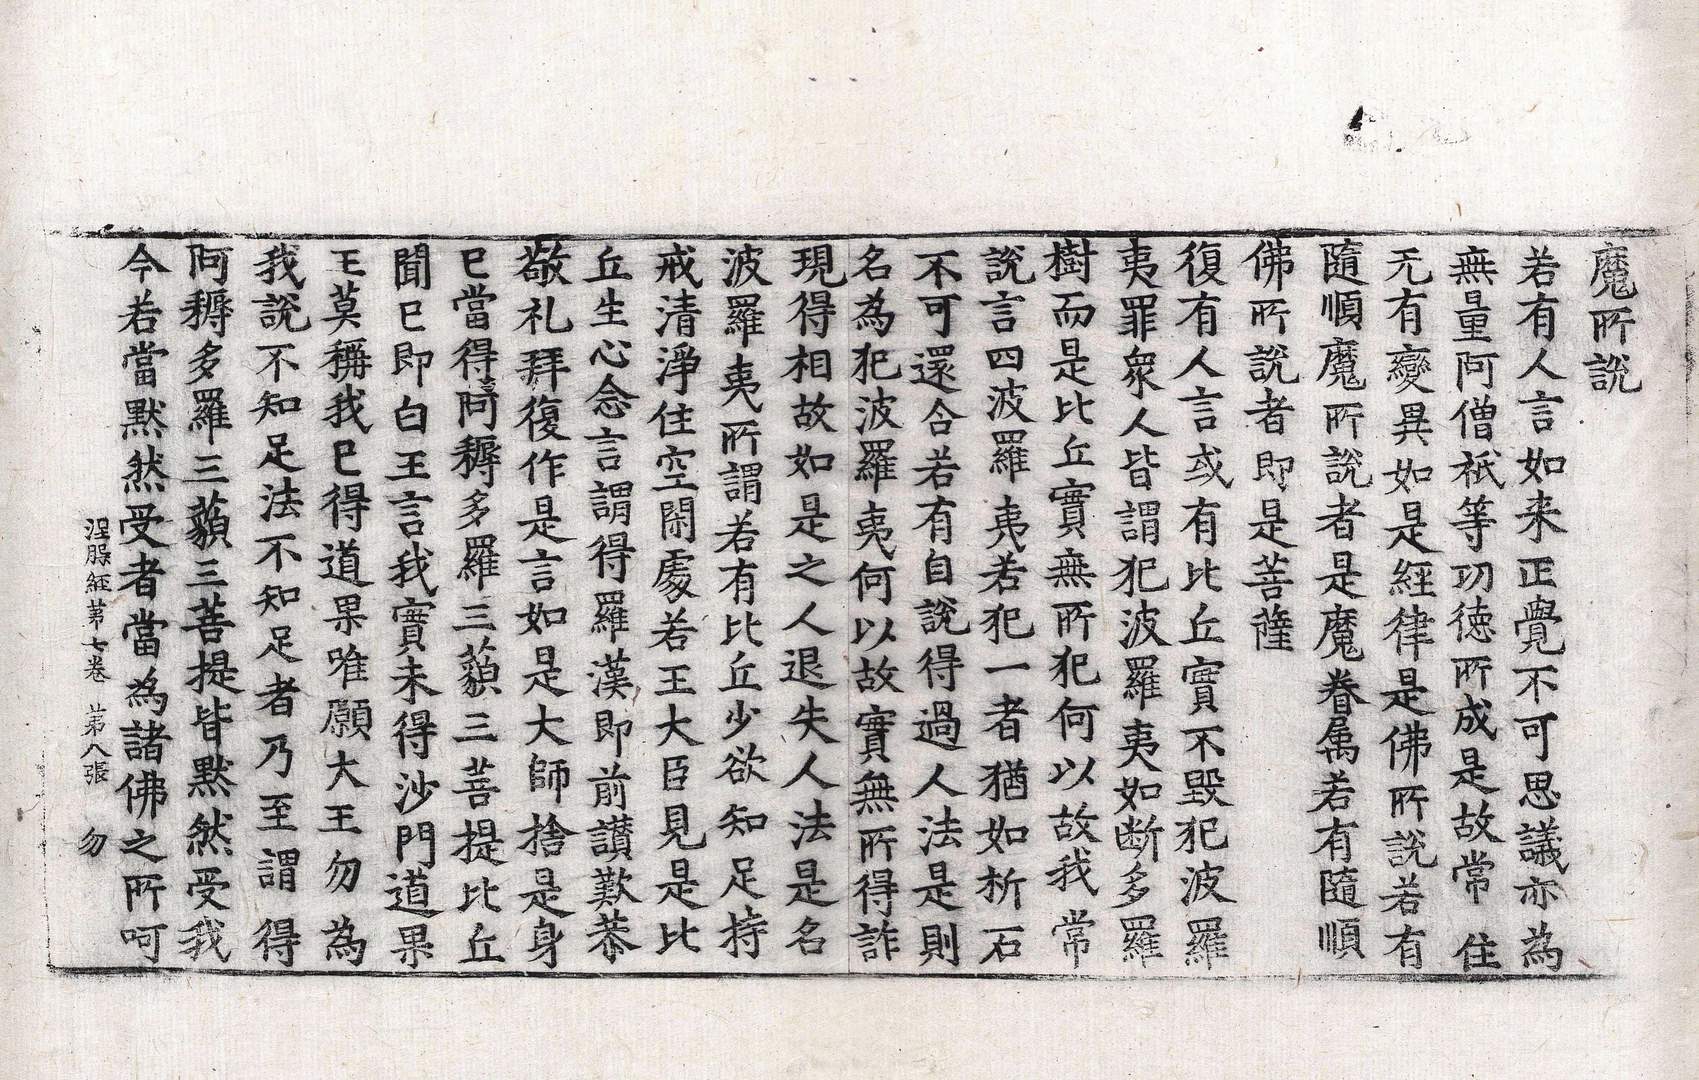 魔所說
若有人言如来正覺不可思議亦為
無量阿僧祇等功徳所成是故常住
无有變異如是經律是佛所說若有
隨順魔所說者是魔眷属若有隨順
佛所說者即是菩薩
復有人言或有比丘實不毀犯波羅
夷罪衆人皆謂犯波羅夷如断多羅
樹而是比丘實無所犯何以故我常
說言四波羅夷若犯一者猶如析石
不可還合若有自說得過人法是則
名為犯波羅夷何以故實無所得詐
現得相故如是之人退失人法是名
波羅夷所謂若有比丘少欲知足持
戒清淨住空閑處若王大臣見是比
丘生心念言謂得羅漢即前讃歎恭
敬礼拜復作是言如是大師捨是身
已當得阿耨多羅三藐三菩提比丘
聞已即白王言我實未得沙門道果
王莫稱我已得道果唯願大王勿為
我說不知足法不知足者乃至謂得
阿耨多羅三藐三菩提皆默然受我
今若當默然受者當為諸佛之所呵
涅槃經苐七卷 苐八張 勿